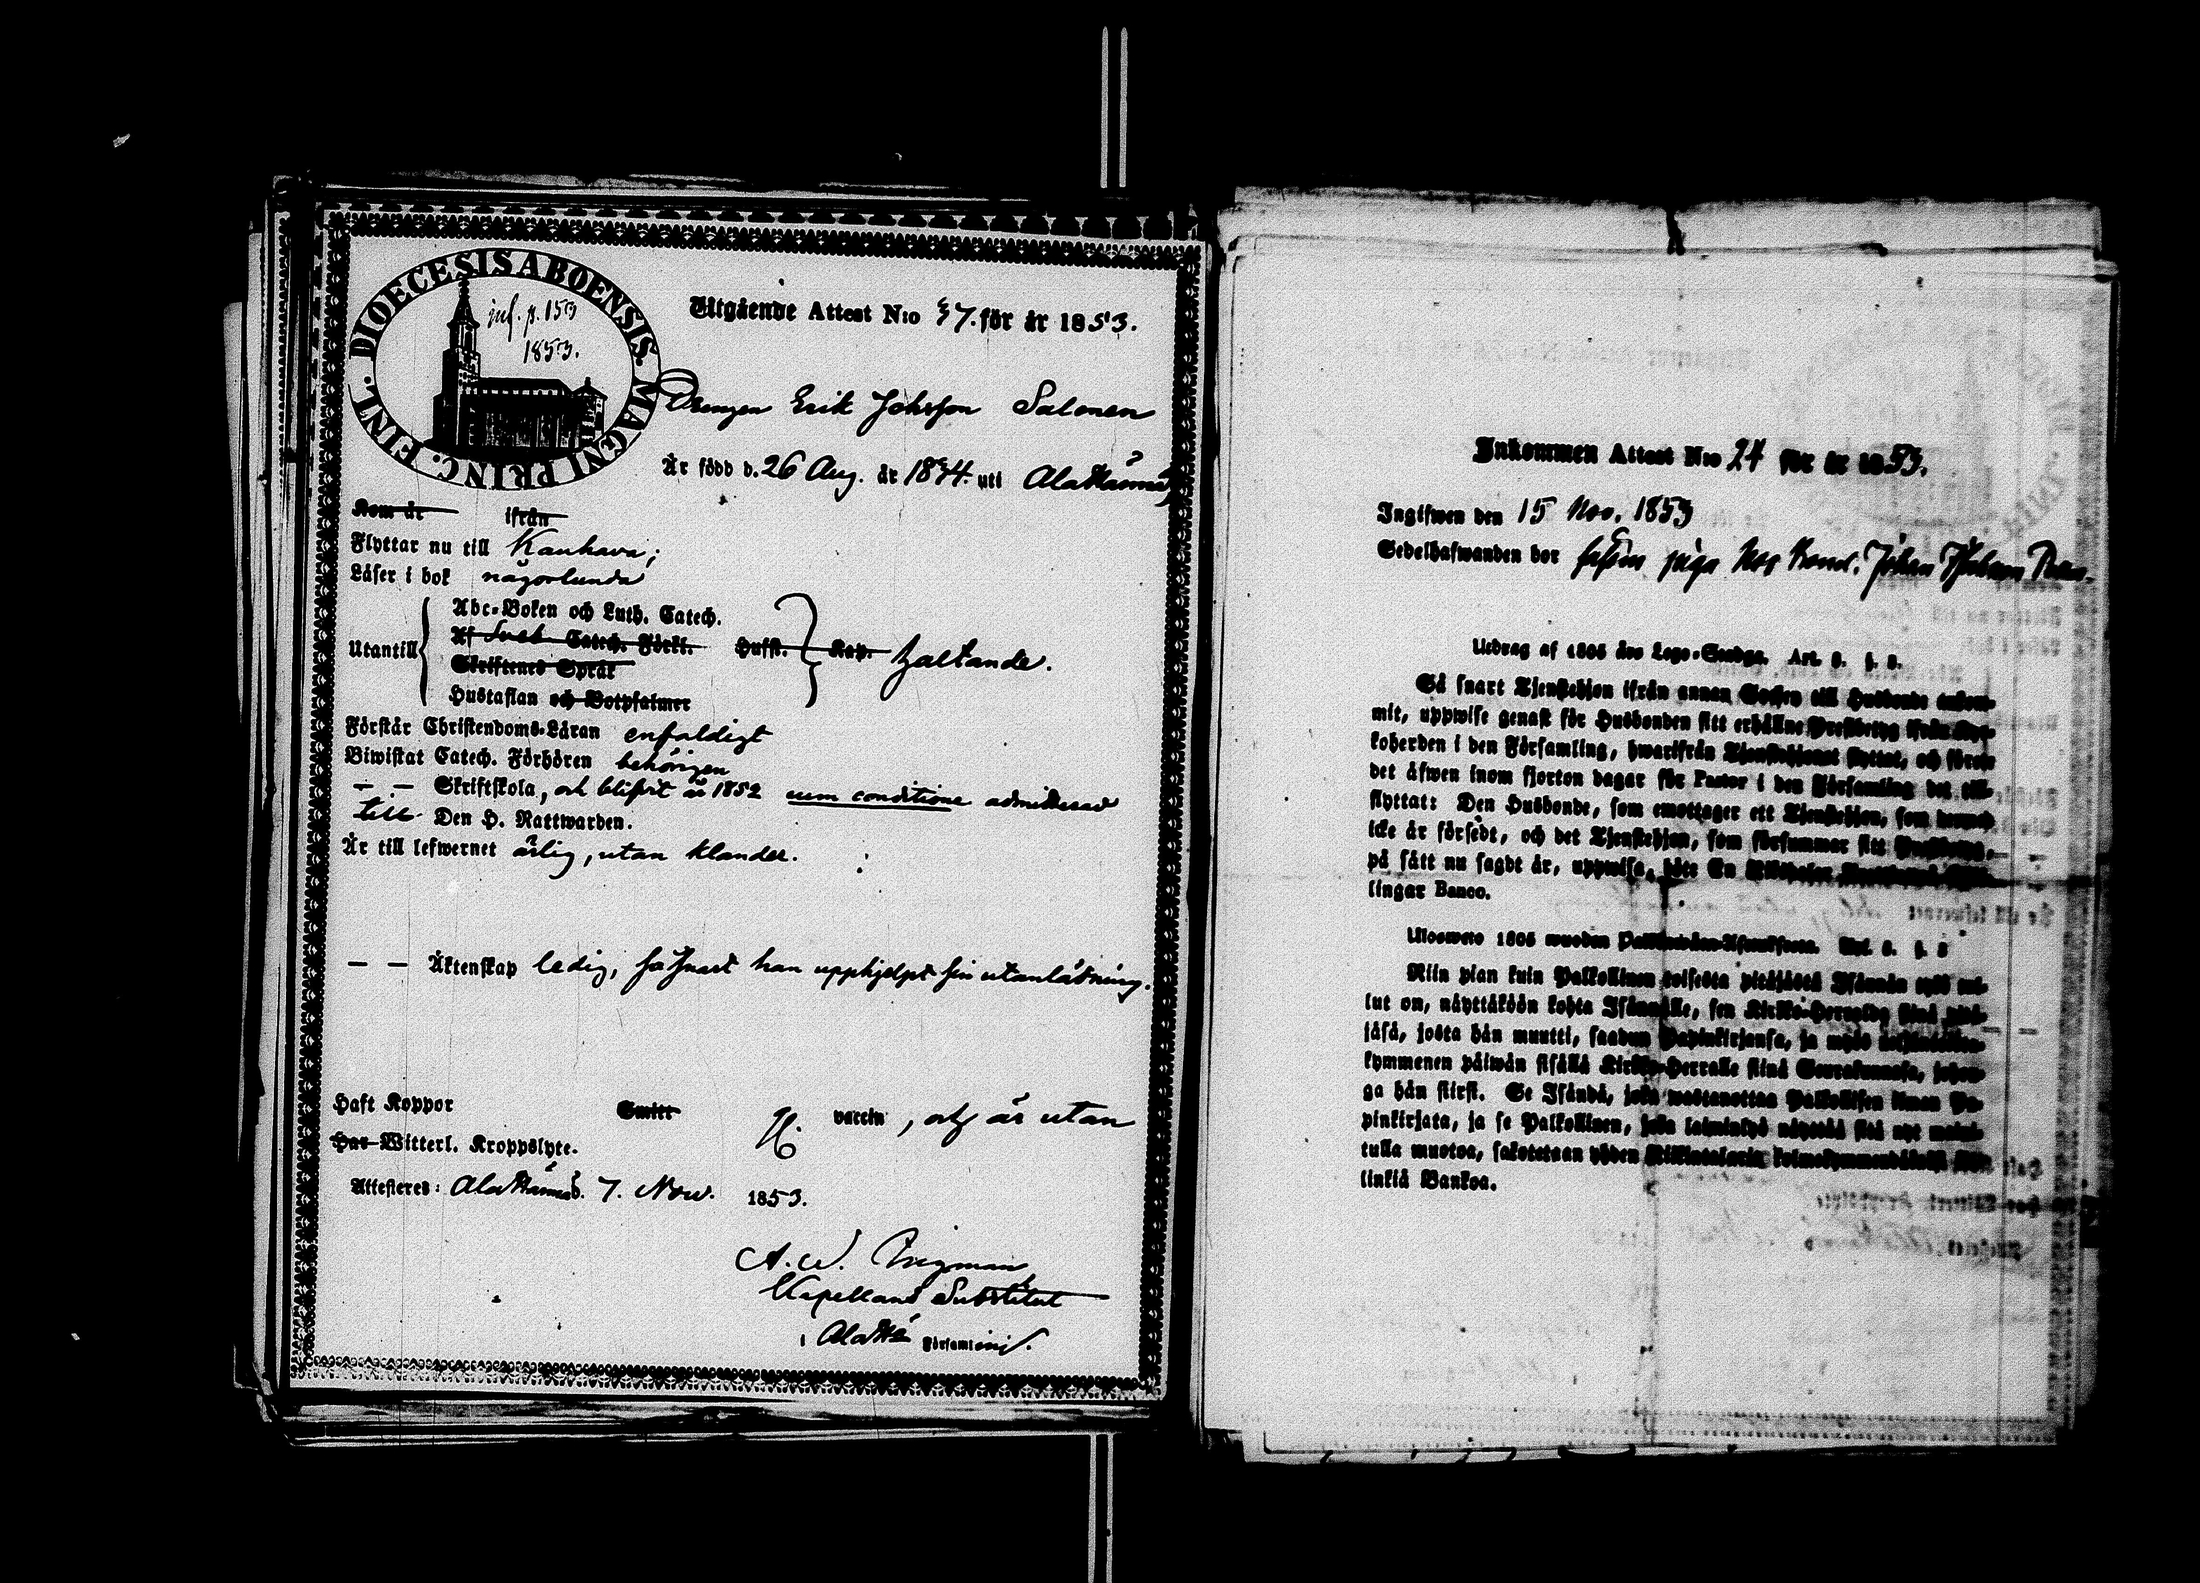 DIOECESIS ABOENSIS. MAGNI PRINC. FINL.
inf. p. 153
1853.
Utgående Attest N:o 37. för år 1853.
Drengen Erik Johsson Salonen
Är född d. 26 Aug. år 1834. uti Alahärmä
Kom år ifrån
Flyttar nu till Kauhava;
Läser i bok någorlunda
Utantill
Abc-Boken och Luth. Catech.
Af Sveb. Catech. Förkl. Hufst. Kap. haltande.
Skriftenes Språk
Hustaflan och Botpsalmer
Förstår Christendoms-Läran enfaldigt
Biwistat Catech. Förhören behörigen
— — Skriftskola, och blifvit år 1852 cum conditione admitterad
till Den H. Nattwarden.
Är till lefwernet ärlig, utan klander.
— — Äktenskap ledig, så snart han upphjelpt sin utanläsning.
Haft Koppor Smitt vaccin, och är utan
Har Witterl. Kroppslyte.
Attesteras: Alahärmä d. 7. Nov. 1853.
A. W.
Kapellans Substitut
i Alahä Församling.
Inkommen Attest N:o 24 för år 1853.
Ingifwen den 15 Nov. 1853
Sedelhafwanden bor hos Bond. Johan
Utdrag af 1805 års Lego-Stadga. Art. §.
Så snart Tjenstehjon ifrån annan Socken till Husbonde ankommit,
uppwise genast för Husbonden sitt erhållne Prestbetyg ifrån
koherden i den Församling, hwarifrån Tjenstehjonet flyttat, och förete
det äfwen inom fjorton dagar för Pastor i den Församling det till-
flyttat: Den Husbonde, som emottager ett Tjenstehjon, som dermed
icke är försedt, och det Tjenstehjon, som försummar sitt Prestbetyg,
på sätt nu sagdt är, uppwisa, böte En Riksdaler
lingar Banco.
Ulosweto 1805 wuoden §.
Niin pian kuin Palkollinen toisesta pitäjästä Isännän tykö tul-
lut on, näyttäköön kohta Isännälle, sen Kirkko-Herralda siinä pitä-
jäsä, josta hän muutti, saadun Papinkirjansa, ja myös
kymmenen päiwän sisällä Kirkko-Herralle siinä Seurakunnasa, johon-
ga hän siirsi. Se Isändä, joka wastanottaa Palkollisen ilman Pa-
pinkirjata, ja se Palkollinen, joka laiminlyö näyttää sitä nyt maini-
tulla muotoa, sakotetaan yhden Rikintalarin kolmekymmendäneljä kil-
linkiä Bankoa.